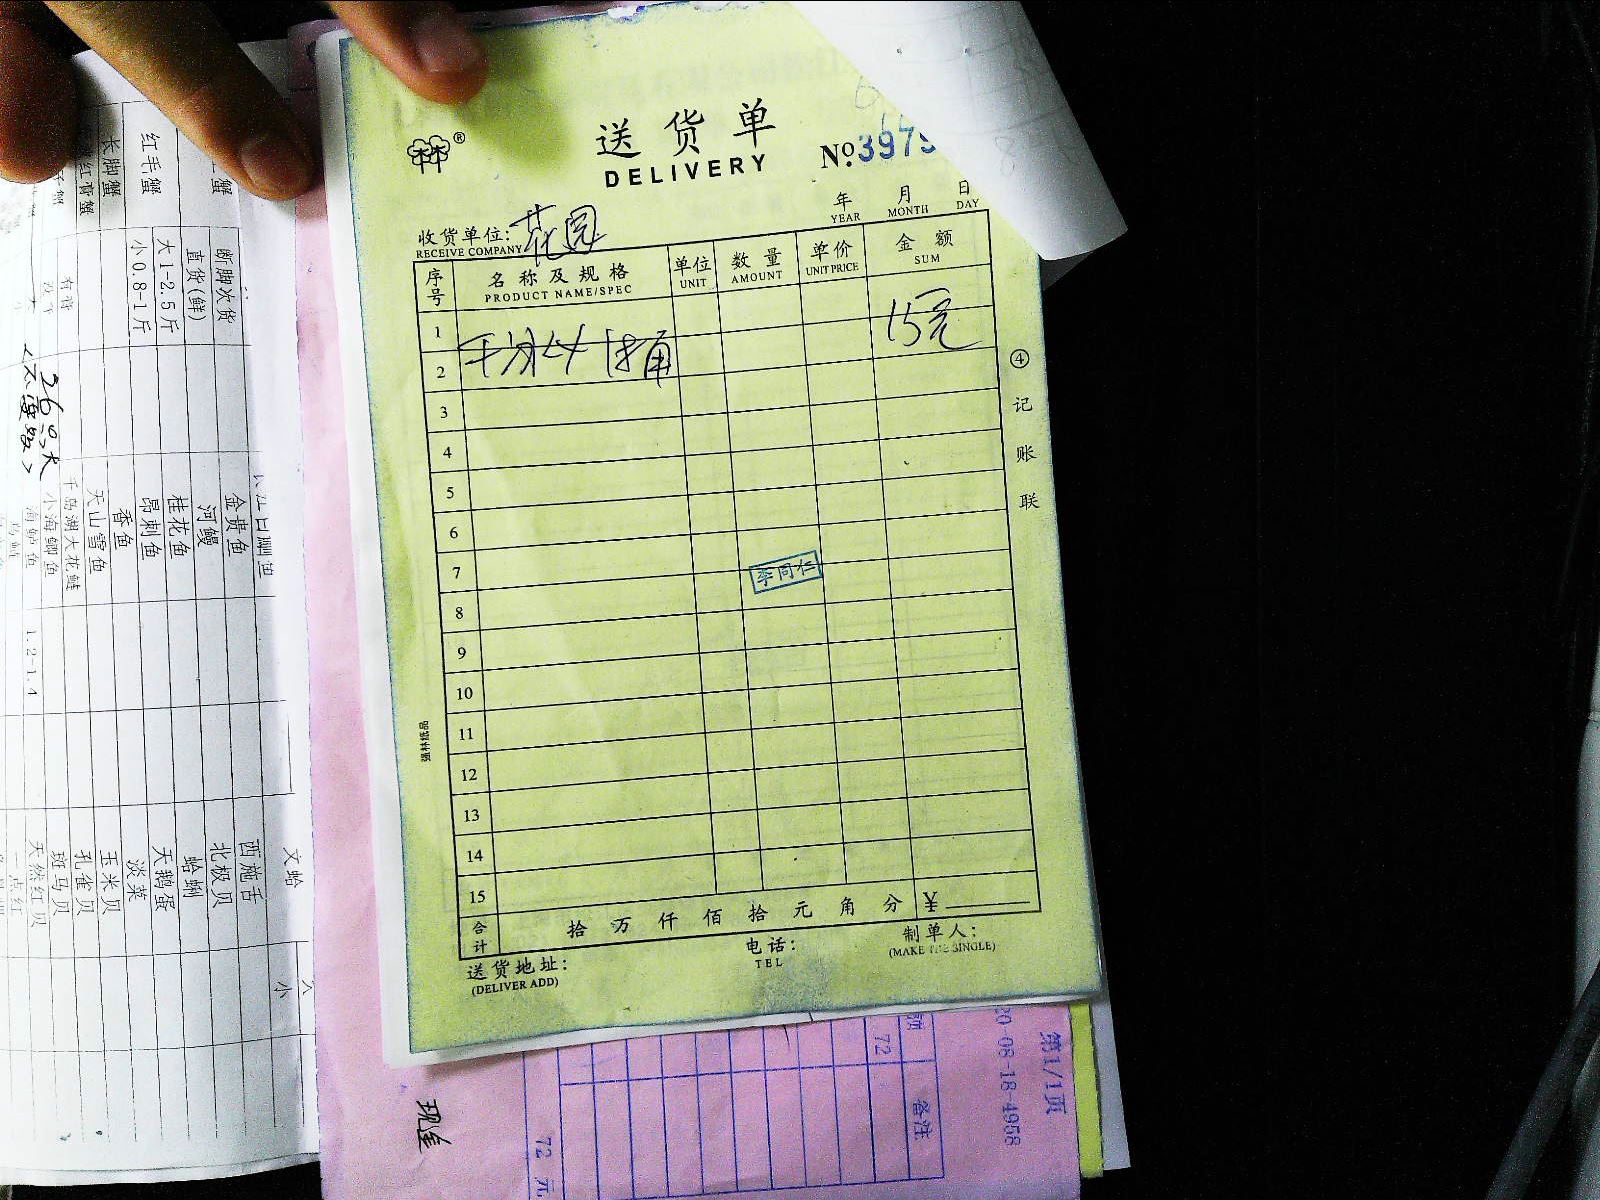 送货单
DELIVERY
No.3979
年 月 日
YEAR MONTH DAY
收货单位: 花园
RECEIVE COMPANY
序号 名称及规格 单位 数量 单价 金额
PRODUCT NAME/SPEC UNIT AMOUNT UNIT PRICE SUM
1
15元
2
3
4
5
6
7
李同仁
8
9
10
11
12
13
14
15
合计 拾 万 仟 佰 拾 元 角 分 ¥
送货地址: 电话: 制单人:
(DELIVER ADD) TEL (MAKE THE SINGLE)
④记账联
强林纸品
®
断脚次货
直货(鲜)
红毛蟹 大1-2.5斤
小0.8-1斤
长脚蟹
红膏蟹
26号大
金贵鱼
河鳗
桂花鱼
昂刺鱼
香鱼
天山雪鱼
千岛湖大花鲢
小海鲫鱼
海鲈鱼 1.2-1.4
文蛤
西施舌
北极贝
蛤蜊
天鹅蛋
淡菜
玉米贝
孔雀贝
斑马贝
天然红贝
一点红
小
第1/1页
20-08-18-4958
备注
72
72 元